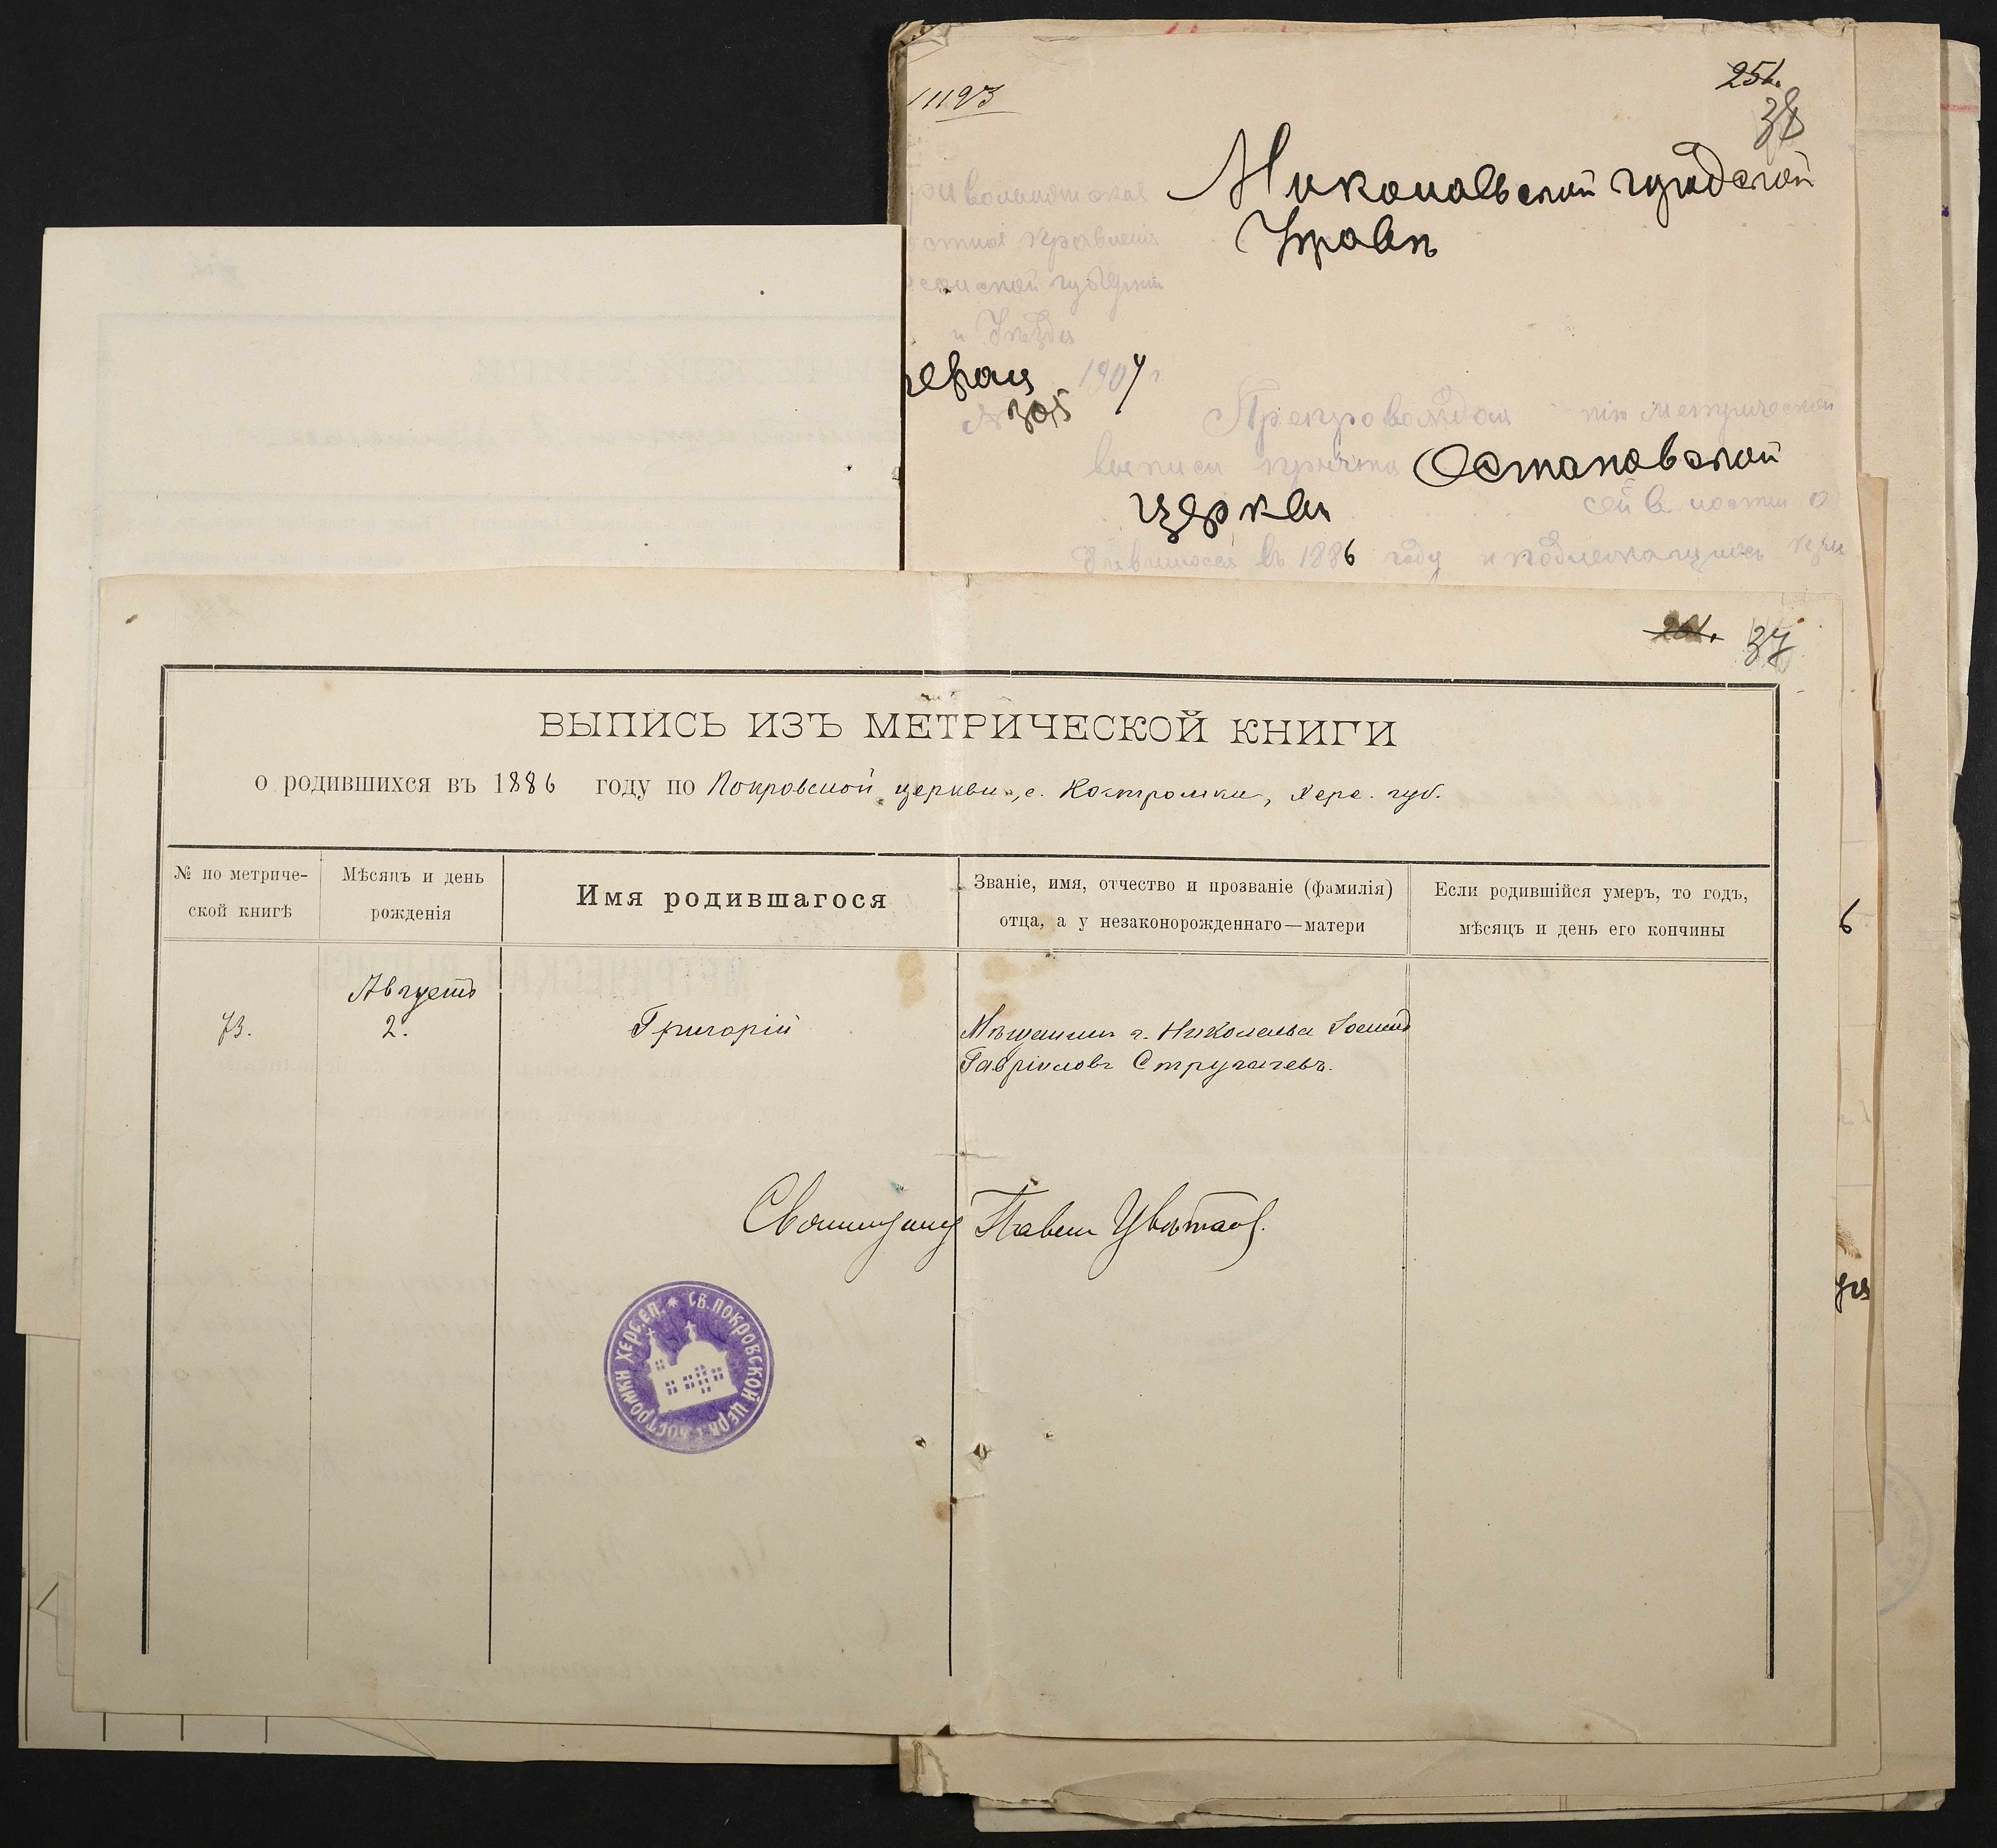 1123
251.
38
Никопольской городской
Управѣ
остное Правленіе
ской губерніи
и Уѣзда
1904 г
№ 305
Препровождая метрической
выписи причта Остаповской
церкви
въ 1886 году
251. 37
ВЫПИСЬ ИЗЪ МЕТРИЧЕСКОЙ КНИГИ
о родившихся въ 1886 году по Покровской церкви, с. Костромки, Херс. губ.
№ по метриче-
ской книгѣ
Мѣсяцъ и день
рожденія
Имя родившагося
Званіе, имя, отчество и прозваніе (фамилія)
отца, а у незаконорожденнаго—матери
Если родившійся умеръ, то годъ,
мѣсяцъ и день его кончины
6
Августъ
73. 2. Григорій Мѣщанинъ г. Никополя
Гавріиловъ Стругачевъ.
Священникъ Павелъ Цвѣтаевъ.
СВ. ПОКРОВСКОЙ ЦЕРК. С. КОСТРОМКИ ХЕРС. ЕП.